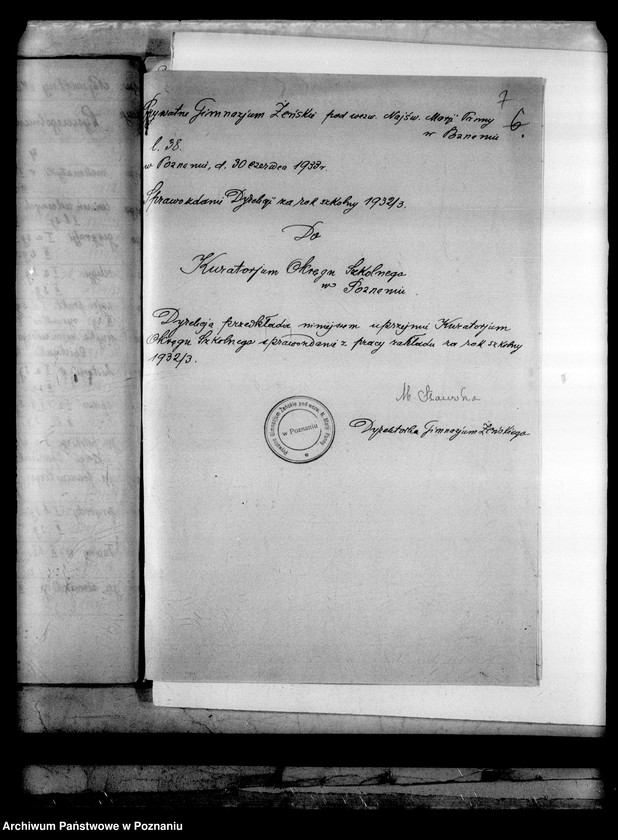 7
Prywatne Gimnazjum Żeńskie pod wezw. Najśw. Marji Panny
w Poznaniu
6.
l. 38.
w Poznaniu, d. 30 czerwca 1933 r.
Sprawozdanie Dyrekcji za rok szkolny 1932/3.
Do
Kuratorjum Okręgu Szkolnego
w Poznaniu
Dyrekcja przedkłada niniejszem uprzejmie Kuratorjum
Okręgu Szkolnego sprawozdanie z pracy zakładu za rok szkolny
1932/3.
M
Dyrektorka Gimnazjum Żeńskiego
Prywatne Gimnazjum Żeńskie pod wezw. N. Marji Panny
w Poznaniu
Archiwum Państwowe w Poznaniu